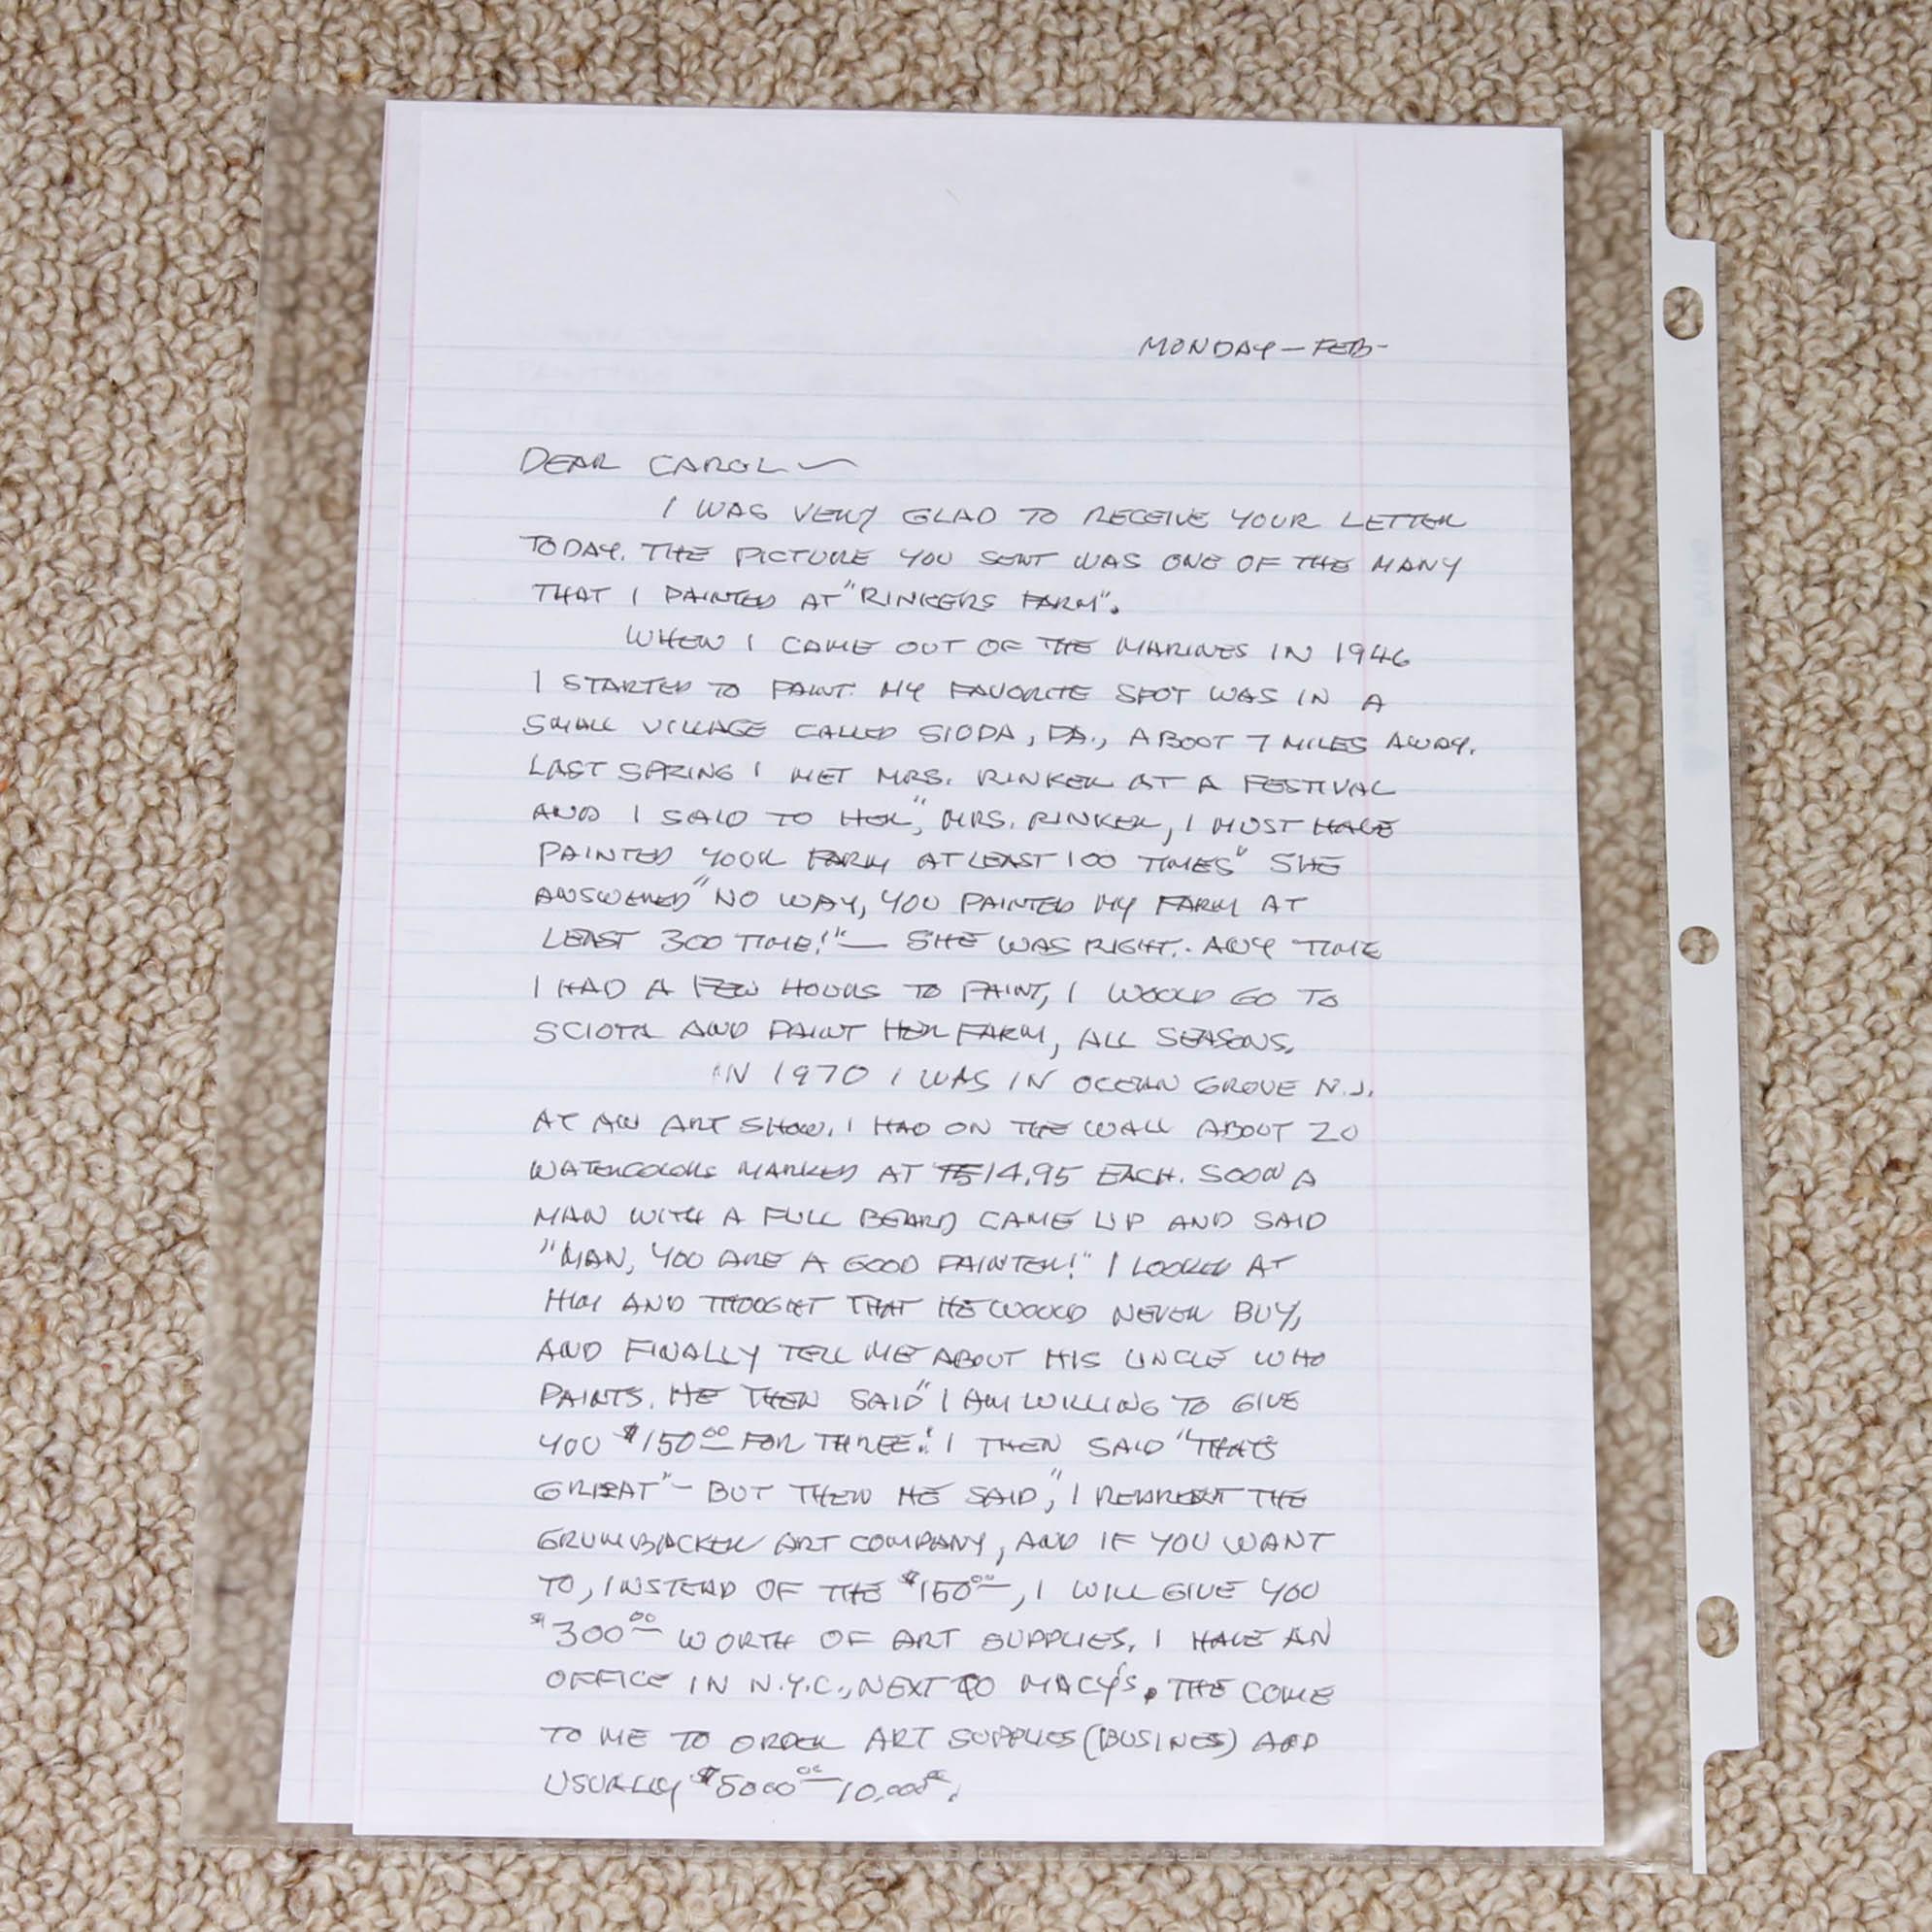 MONDAY - FEB -
DEAR CAROL ~
I WAS VERY GLAD TO RECEIVE YOUR LETTER
TODAY. THE PICTURE YOU SENT WAS ONE OF THE MANY
THAT I PAINTED AT "RINKERS FARM".
WHEN I CAME OUT OF THE MARINES IN 1946
I STARTED TO PAINT. MY FAVORITE SPOT WAS IN A
SMALL VILLAGE CALLED SIODA, PA., ABOUT 7 MILES AWAY.
LAST SPRING I MET MRS. RINKER AT A FESTIVAL
AND I SAID TO HER, "MRS. RINKER, I MUST HAVE
PAINTED YOUR FARM AT LEAST 100 TIMES" SHE
ANSWERED "NO WAY, YOU PAINTED MY FARM AT
LEAST 300 TIME!" — SHE WAS RIGHT. ANY TIME
I HAD A FEW HOURS TO PAINT, I WOULD GO TO
SCIOTA AND PAINT HER FARM, ALL SEASONS.
IN 1970 I WAS IN OCEAN GROVE N.J.
AT AN ART SHOW. I HAD ON THE WALL ABOUT 20
WATERCOLORS MARKED AT 14.95 EACH. SOON A
MAN WITH A FULL BEARD CAME UP AND SAID
"MAN, YOU ARE A GOOD PAINTER!" I LOOKED AT
HIM AND THOUGHT THAT HE WOULD NEVER BUY,
AND FINALLY TELL ME ABOUT HIS UNCLE WHO
PAINTS. HE THEN SAID "I AM WILLING TO GIVE
YOU $150.00 FOR THREE." I THEN SAID "THAT'S
GREAT" - BUT THEN HE SAID, "I REPRESENT THE
GRUMBACKER ART COMPANY, AND IF YOU WANT
TO, INSTEAD OF THE $150.00, I WILL GIVE YOU
$300.00 WORTH OF ART SUPPLIES. I HAVE AN
OFFICE IN N.Y.C., NEXT TO MACY'S. THE COME
TO ME TO ORDER ART SUPPLIES (BUSINES) AND
USUALLY $5000.00 — 10,000.00.